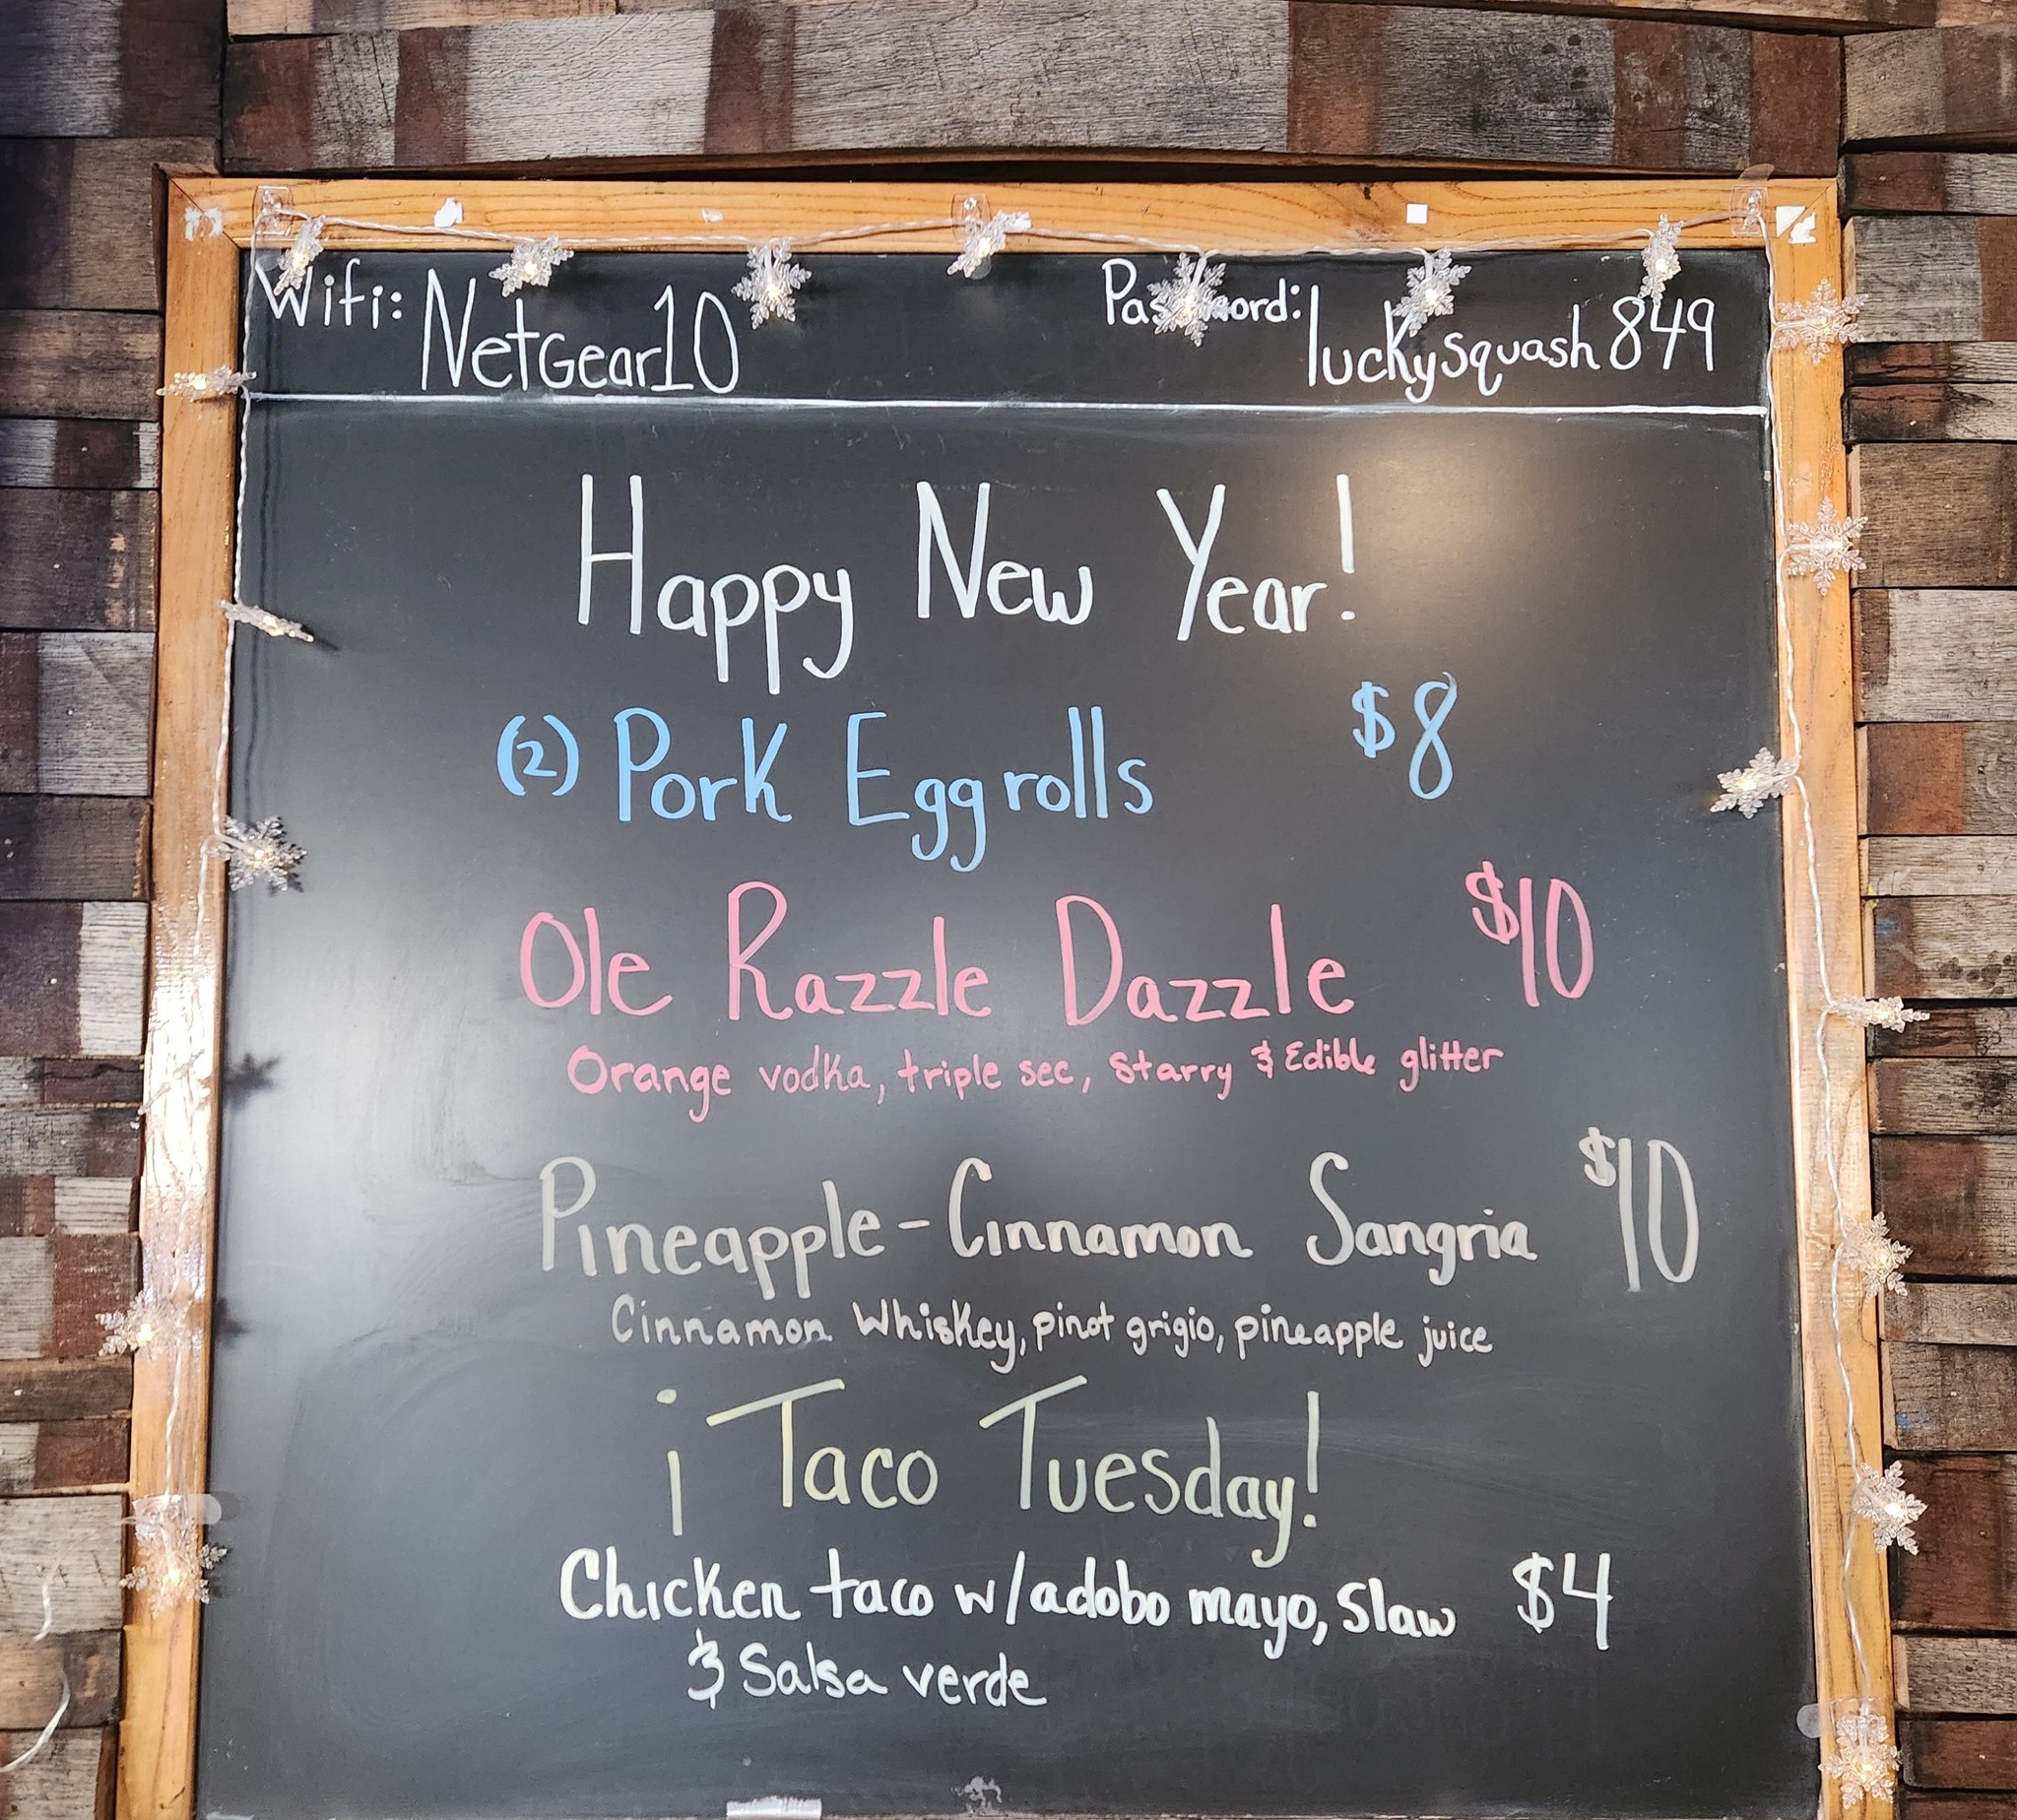 Wifi: NetGear10 Password: luckysquash849
Happy New Year!
(2) Pork Eggrolls $8
Ole Razzle Dazzle $10
Orange vodka, triple sec, Starry & Edible glitter
Pineapple-Cinnamon Sangria $10
Cinnamon Whiskey, pinot grigio, pineapple juice
¡Taco Tuesday!
Chicken taco w/adobo mayo, Slaw $4
& Salsa verde